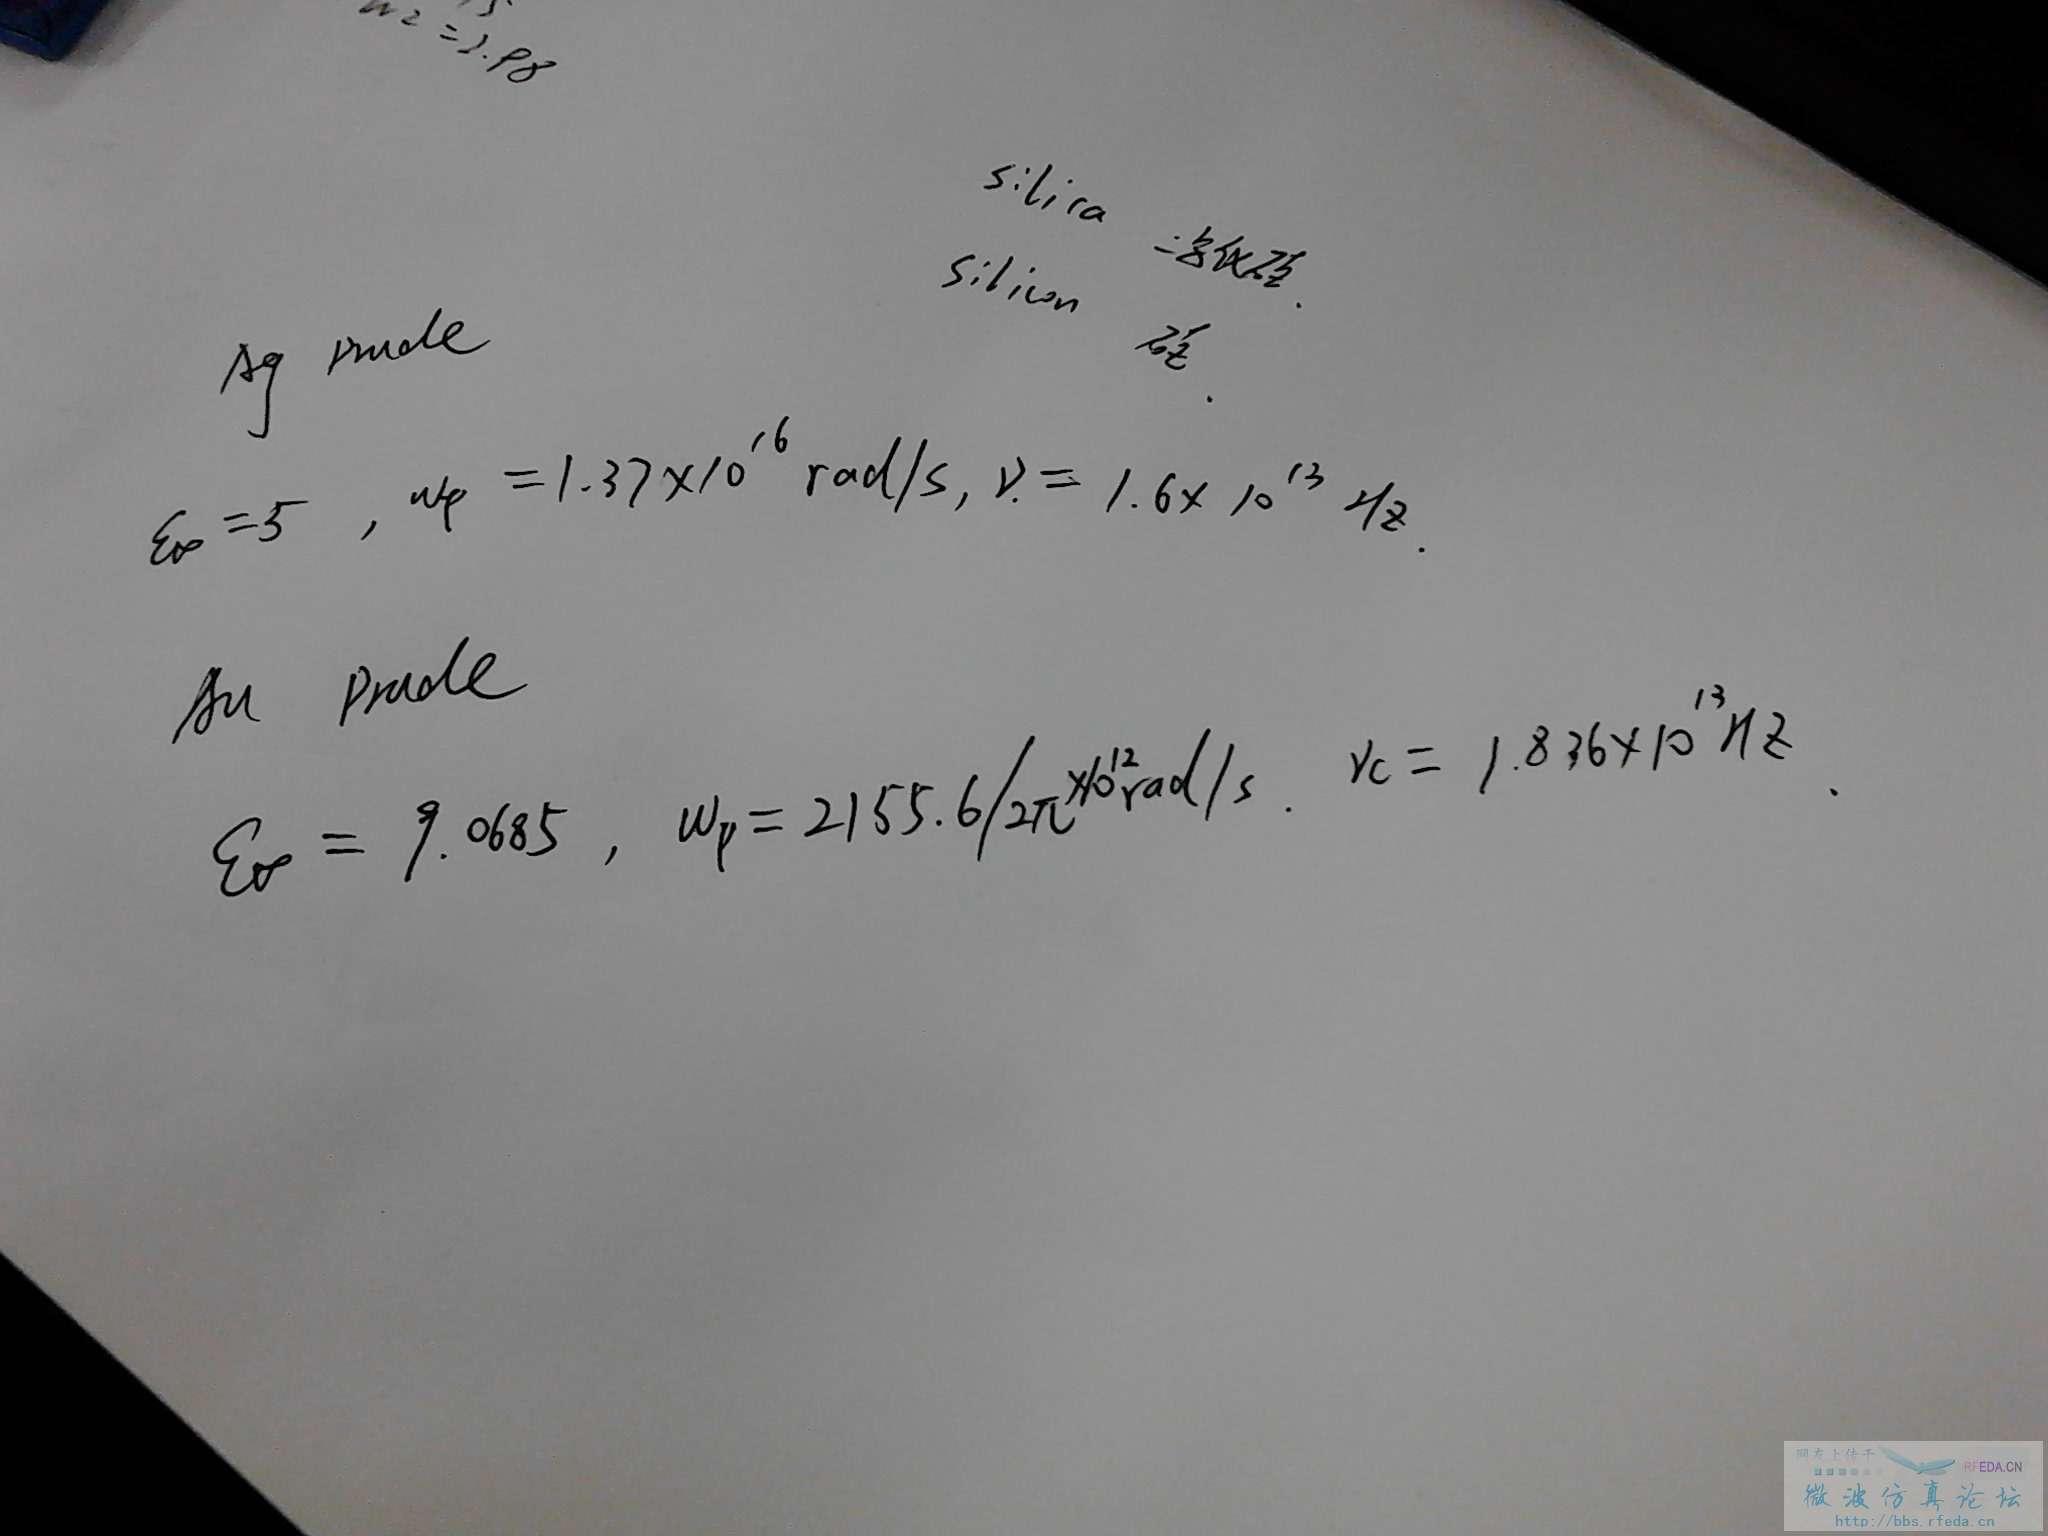 =2.98
silica 二氧化硅.
silicon 硅.
Ag Drude
ε∞ =5 , wp =1.37×10^16 rad/s, γ. = 1.6×10^13 Hz.
Au Drude
ε∞ = 9.0685 , wp = 2155.6/2π ×10^12 rad/s . γc = 1.836×10^13 HZ .
网友上传于
RFEDA.CN
微波仿真论坛
http://bbs.rfeda.cn